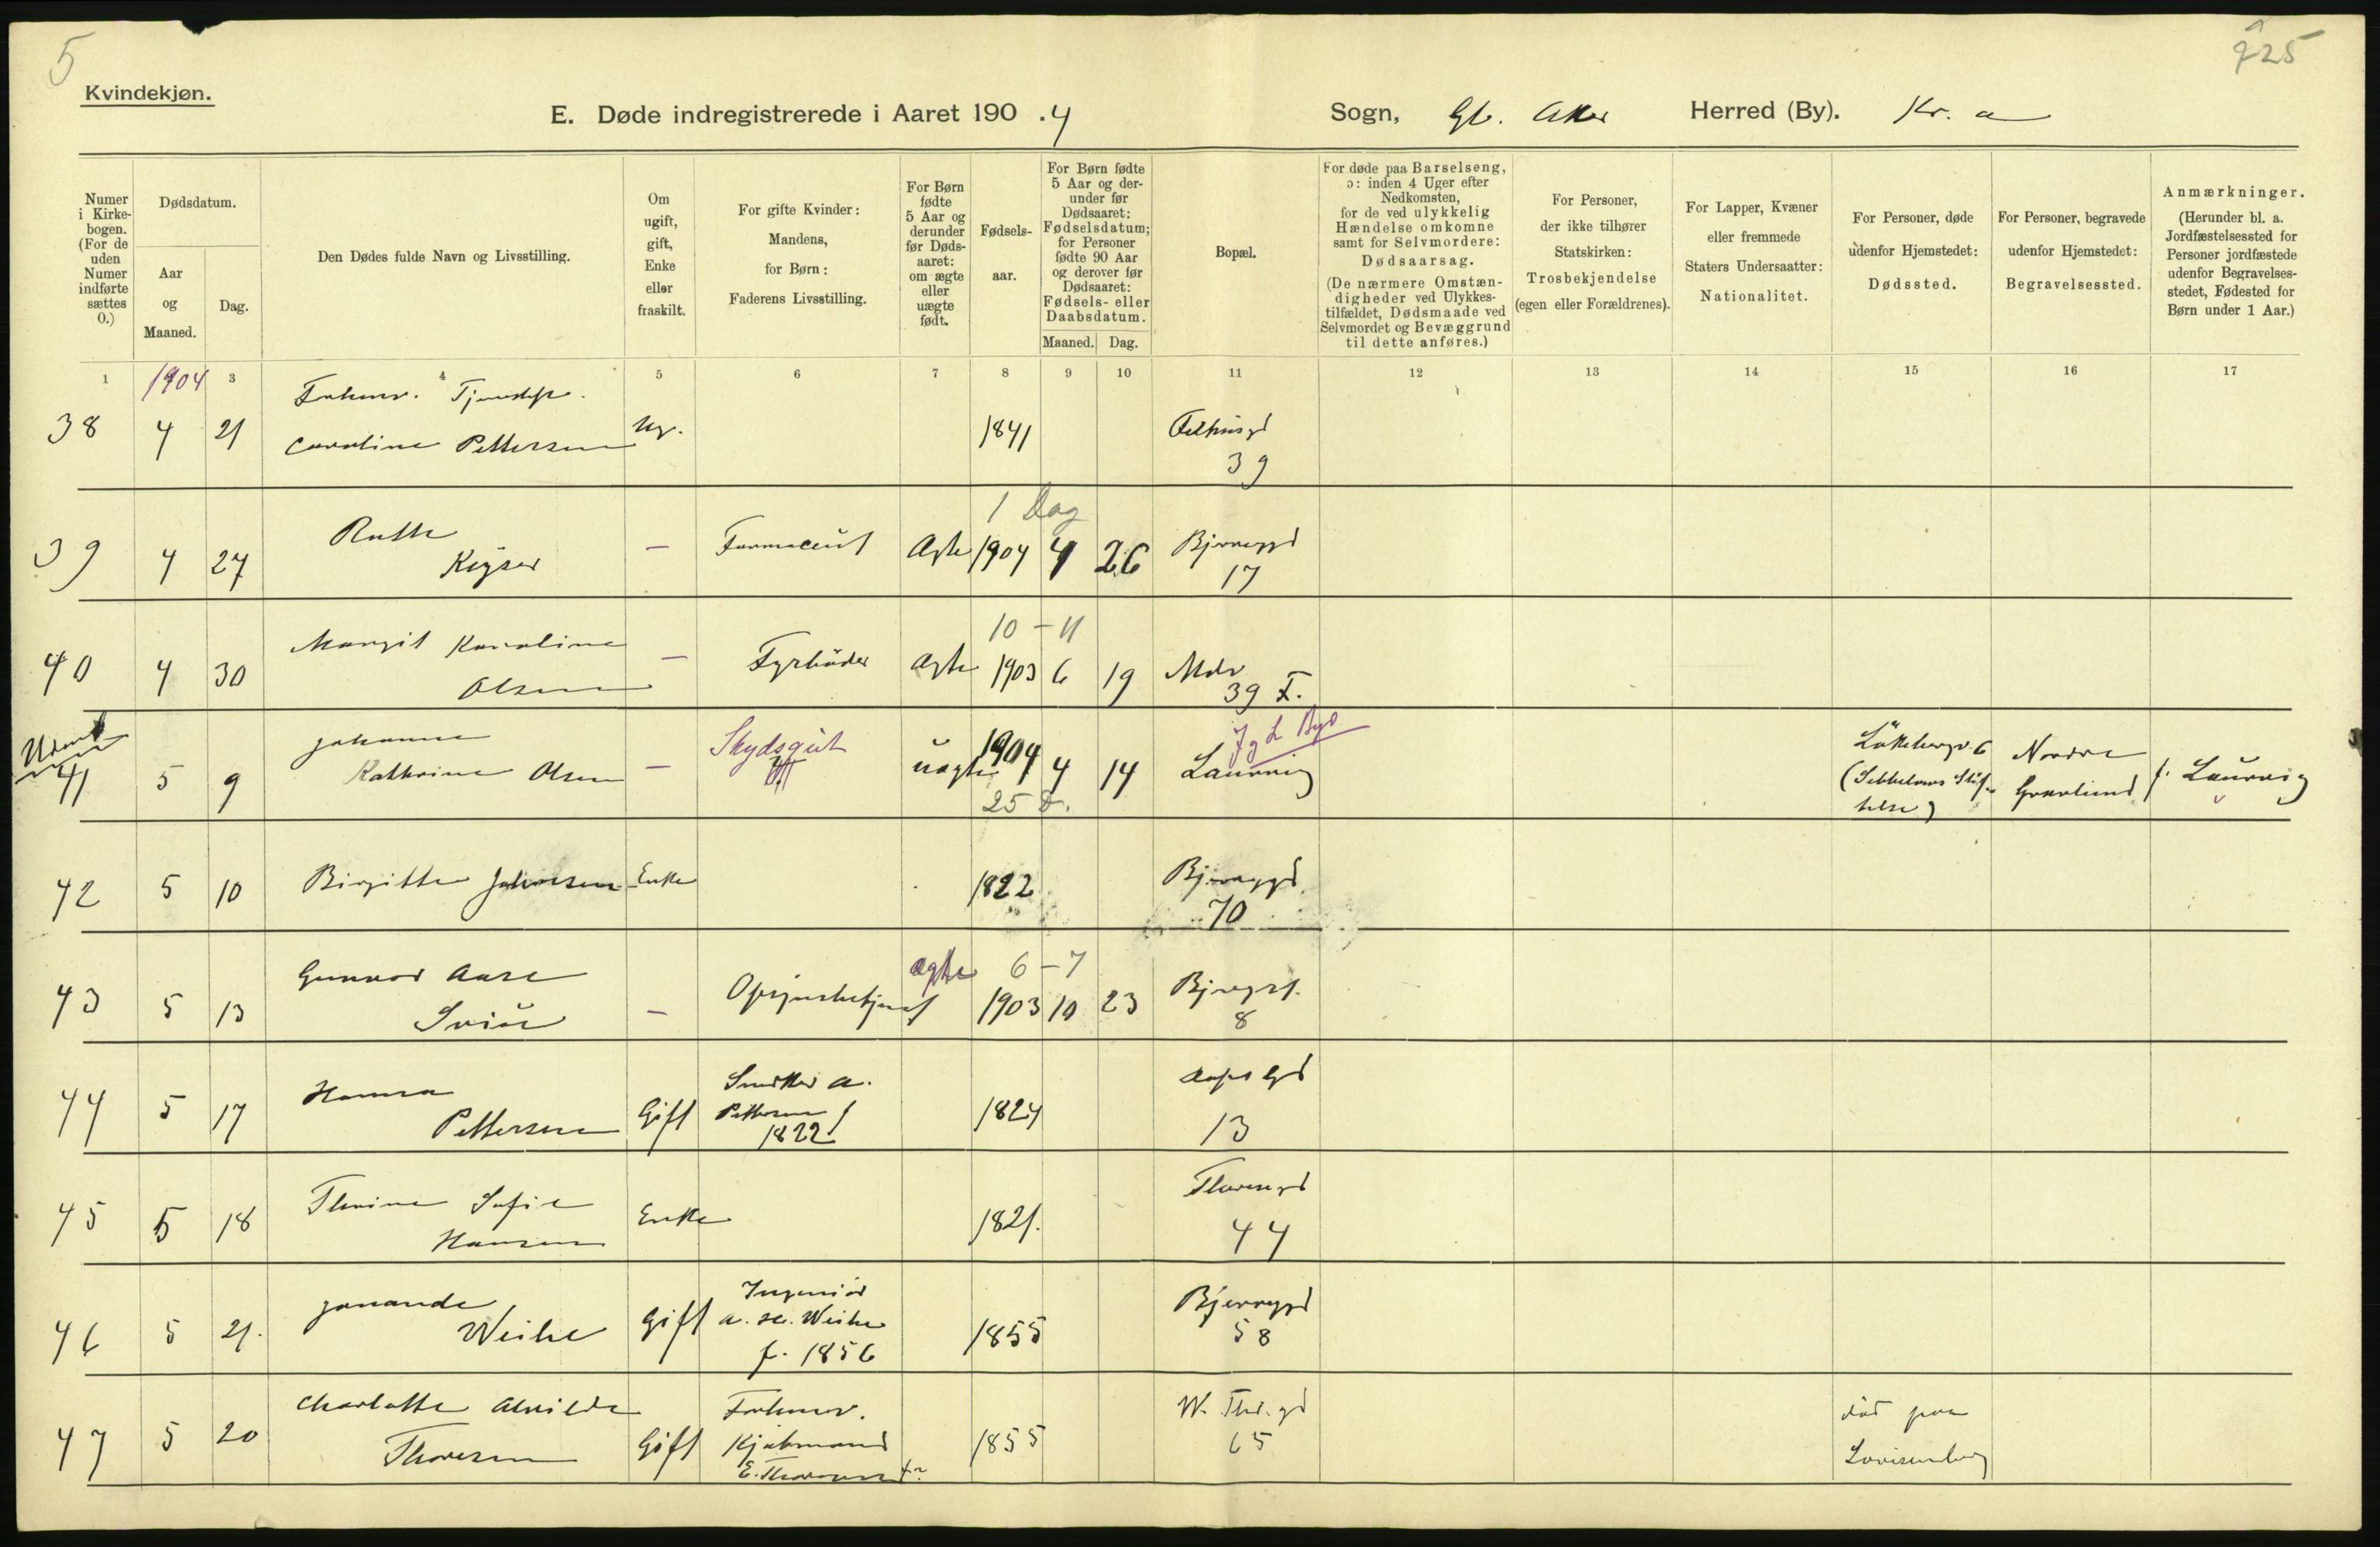 5
225
Kvindekjøn.
E. Døde indregistrerede i Aaret 190.4 Sogn, Gl. Aker Herred (By). Kr. a
Numer i Kirkebogen. (For de uden Numer indførte sættes 0.)
Dødsdatum.
Aar og Maaned.
Dag.
Den Dødes fulde Navn og Livsstilling.
Om ugift, gift, Enke eller fraskilt.
For gifte Kvinder: Mandens, for Børn: Faderens Livsstilling.
For Børn fødte 5 Aar og derunder før Dødsaaret: om ægte eller uægte født.
Fødselsaar.
For Børn fødte 5 Aar og derunder før Dødsaaret: Fødselsdatum; for Personer fødte 90 Aar og derover før Dødsaaret: Fødsels- eller Daabsdatum.
Maaned. Dag.
Bopæl.
For døde paa Barselseng, ɔ: inden 4 Uger efter Nedkomsten, for de ved ulykkelig Hændelse omkomne samt for Selvmordere: Dødsaarsag.
(De nærmere Omstændigheder ved Ulykkestilfældet, Dødsmaade ved Selvmordet og Bevæggrund til dette anføres.)
For Personer, der ikke tilhører Statskirken: Trosbekjendelse (egen eller Forældrenes).
For Lapper, Kvæner eller fremmede Staters Undersaatter: Nationalitet.
For Personer, døde udenfor Hjemstedet: Dødssted.
For Personer, begravede udenfor Hjemstedet: Begravelsessted.
Anmærkninger.
(Herunder bl. a. Jordfæstelsessted for Personer jordfæstede udenfor Begravelsesstedet, Fødested for Børn under 1 Aar.)
1 1904 3 4 5 6 7 8 9 10 11 12 13 14 15 16 17
Forhenv.
38 4 21 Caroline Pettersen Ug. 1841
39
1 Dag
39 4 27 Ruth Keyser — Farmaceut Ægte 1904 4 26 Bjerregd
17
10 - 11
40 4 30 Margit Karoline Olsen — Fyrbøder Ægte 1903 6 19
39 I.
41 5 9 Johanne Kathrine Olsen — Skydsgut uægte 1904 4 14 Laurvig
25 D.
(Sebbelows Stiftelse) Nordre Gravlund f. Laurvig
42 5 10 Birgitte Johnsen Enke 1822 Bjerregd
70
ægte 6 - 7
43 5 13 Gunvor Aase — 1903 10 23
8
44 5 17 Hanna Pettersen Gift Snedker A. Pettersen f 1822 1824
13
45 5 18 Thrine Sofie Hansen Enke 1821.
44
46 5 21. Jonande Weihe Gift Ingeniør Weihe f. 1856 1855 Bjerregd
58
47 5 20 Charlotte Alvilde Thoresen Gift Forhenv. Kjøbmand E. Thoresen 1855 W. Thr. gd
65
død paa Lovisenberg